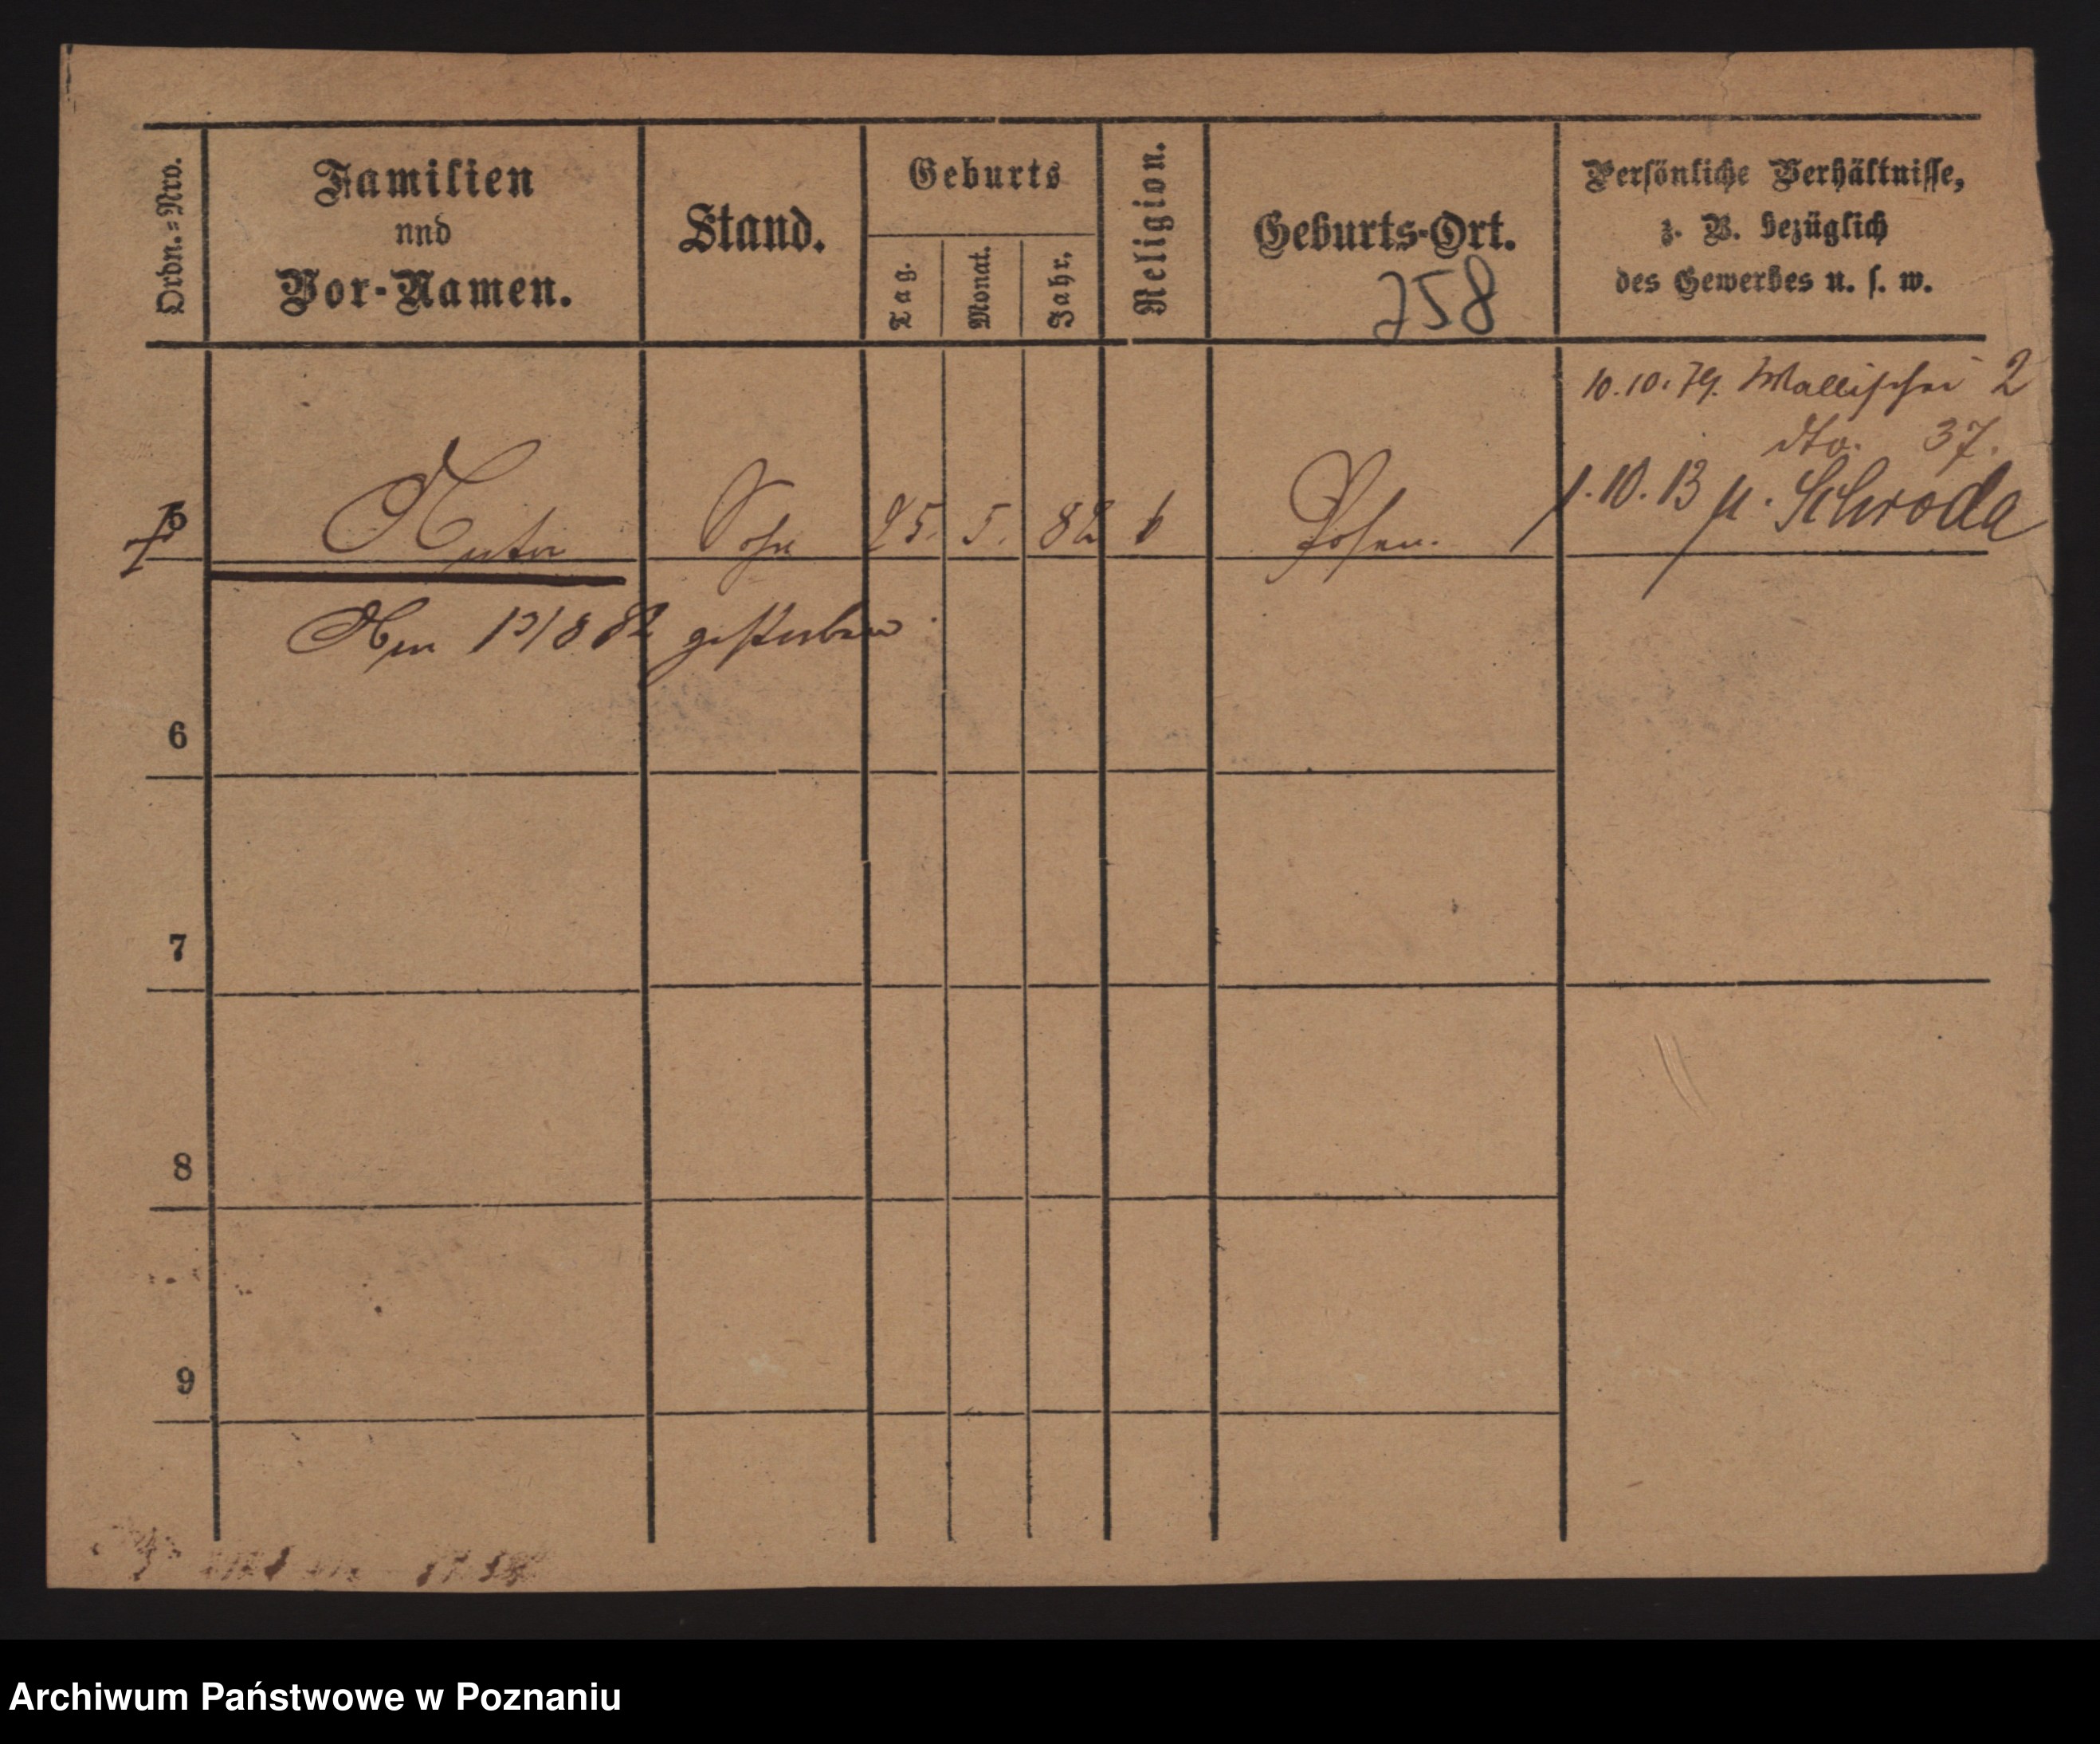 Ordn.=Nro.
Familien
und
Vor-Namen.
Stand.
Geburts
Tag.
Monat.
Jahr.
Religion.
Geburts-Ort.
758
Persönliche Verhältnisse,
z. B. bezüglich
des Gewerbes u. s. w.
10.10.79. Wallischei 2
dto. 37.
5 Sohn 25. 5. 82 k Posen. 1.10.13 n. Schroda
Am 13/8 82 gestorben.
6
7
8
9
Archiwum Państwowe w Poznaniu